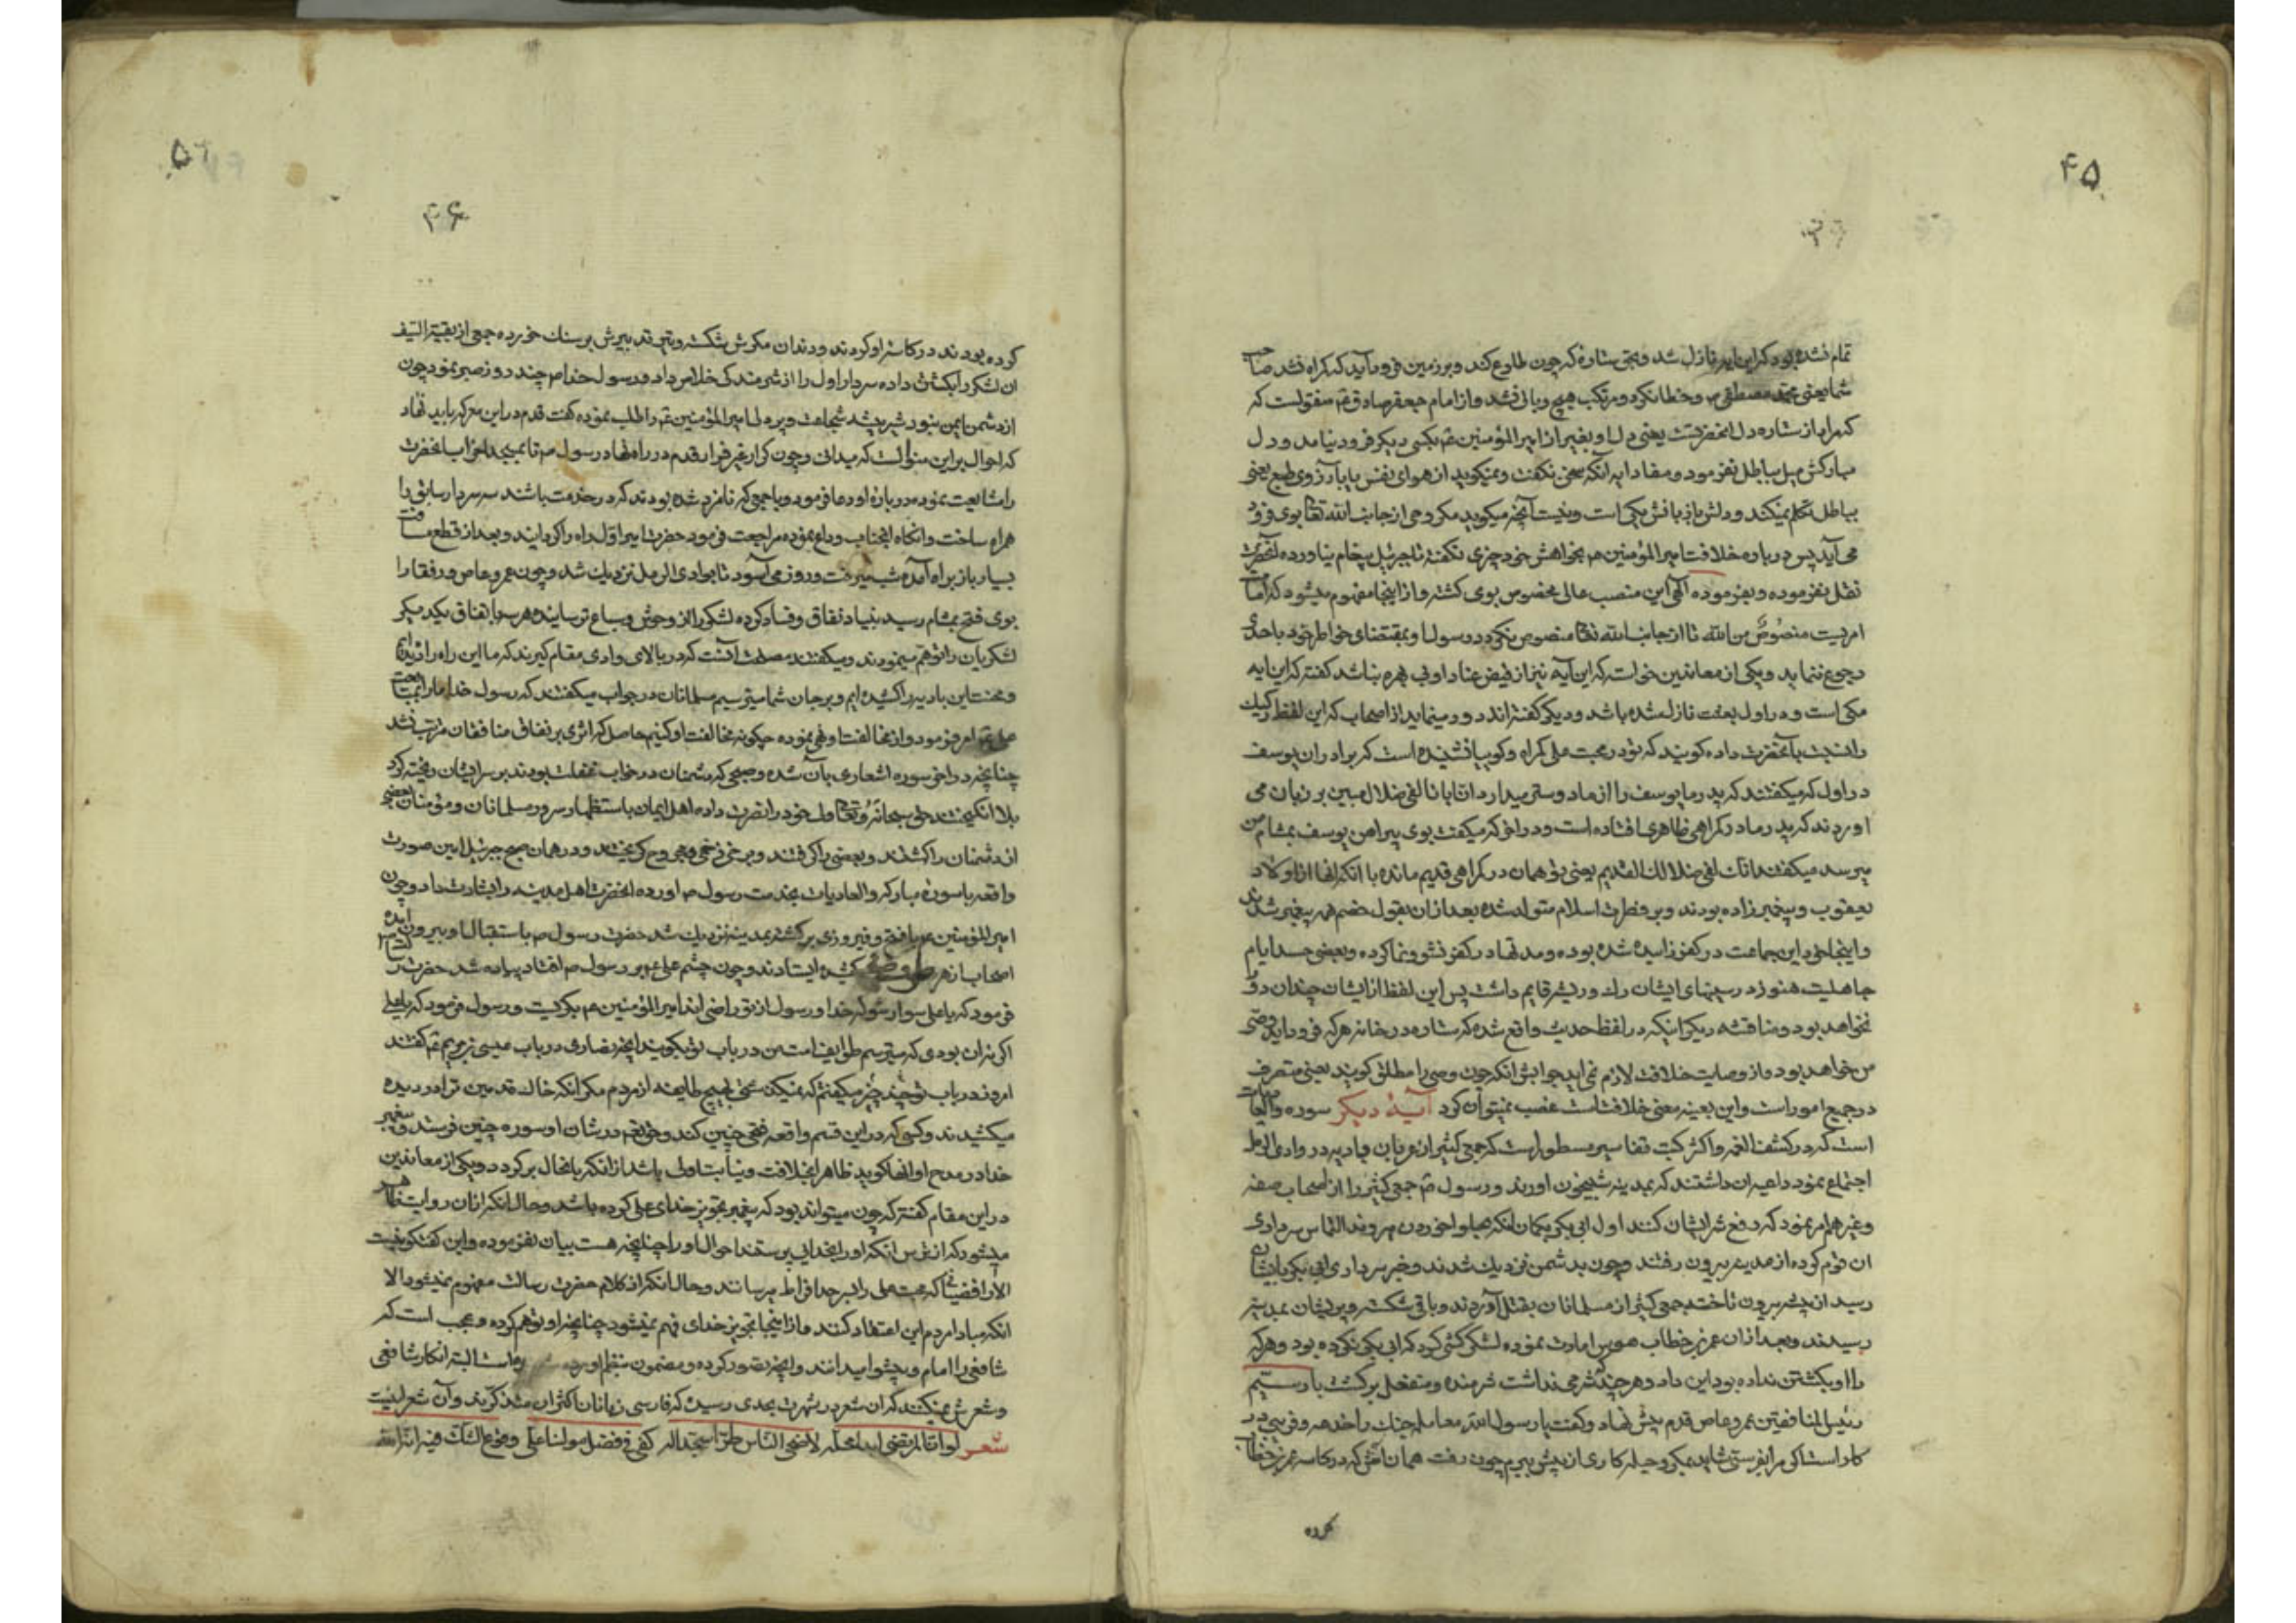 ۴۵
تمام نشده بود که این آیه نازل شد و بحق ستاره که چون طلوع کند و بر زمین فرود آید که گمراه نشد صاحب
شما یعنی محمد مصطفی ص و خطا نکرد و مرتکب هیچ و بالی نشد و از امام جعفر صادق ع منقولست که
که مراد از ستاره دل آنحضرتست یعنی دل او بغیر از امیر المؤمنین ع بکسی دیگر فرود نیامد و دل
مبارکش میل بباطل نفرمود و مفاد آیه آنکه سخن نگفت و نمیگوید از هوای نفس یا بآرزوی طبع یعنی
بباطل تکلم نمیکند و دلش با زبانش یکی است و نیست آنچه میگوید مگر وحی از جانب الله تعا بوی فرو
می آید پس درباره خلافت امیر المؤمنین ع بخواهش خود چیزی نگفته تا جبرئیل پیغام نیاورده آنحضرت
نقل نفرموده و بفرموده الهی این منصب عالی مخصوص بوی گشته و از اینجا مفهوم میشود که امامت
امریست منصوص من الله تا از جانب الله تعا منصوص نگردد رسول او بمقتضای خواطر خود باحدی
رجوع ننماید و یکی از معاندین خواست که این آیه نیز از فیض عناد او بی بهره نباشد گفته که این آیه
مکی است و در اول بعثت نازل شده باشد و دیگر گفته اند دور مینماید از اصحاب که این لفظ رکیک
را نسبت بآنحضرت داده گویند که تو در محبت علی گمراه و گویا نشنیده است که برادران یوسف
در اول که میگفتند که پدر ما یوسف را از ما دوستر میدارد ان ابانا لفی ضلال مبین بر زبان می
آوردند که پدر ما در گمراهی ظاهری افتاده است و در آخر که میگفت بوی پیراهن یوسف بمشام من
میرسد میگفتند انک لفی ضلالک القدیم یعنی تو همان در گمراهی قدیم مانده با آنکه آنها از اولاد
یعقوب و پیغمبر زاده بودند و بر فطرت اسلام متولد شده بعد از آن بقول خصم هم پیغمبر شدند
و اینجا خود این جماعت در کفر زاییده شده بوده و مدتها در کفر نشو و نما کرده و بعضی حسد ایام
جاهلیت هنوز در سینهای ایشان راه و ریشه قایم داشت پس این لفظ از ایشان چندان دور
نخواهد بود و مناقشه دیگر اینکه در لفظ حدیث واقع شده که ستاره در خانه هر که فرود آید وصی
من خواهد بود و از وصایت خلافت لازم نمی آید جوابش آنکه چون وصی را مطلق گویند یعنی متصرف
در جمیع امور است و این بعینه معنی خلافتست غصب نمیتوان کرد آیهٔ دیگر سوره والعادیات
است که در کشف الغمه و اکثر کتب تفاسیر مسطور است که جمعی کثیر از عربان بادیه در وادی الرمل
اجتماع نمود داعیه آن داشتند که بمدینه شبیخون آورند و رسول ص جمعی کثیر را از اصحاب صفه
و غیرهم امر نمود که دفع شر ایشان کنند اول ابی بکر بگمان آنکه حلوا خوردن میروند التماس سرداری
آن قوم کرده از مدینه بیرون رفتند و چون بدشمن نزدیک شدند و خبر سرداری ابی بکر بایشان
رسید از بیشه بیرون تاخته جمعی کثیر از مسلمانان بقتل آوردند و باقی شکسته و پریشان بمدینه
رسیدند و بعد از آن عمر بن خطاب هوس امارت نموده لشکرکشی کرد که ابی بکر نکرده بود و هر که
را او بکشتن نداده بود این داد و هر چند شرمی نداشت شرمنده و منفعل برگشت بار سیّم
رئیس المنافقین عمرو عاص قدم پیش نهاد و گفت یا رسول الله معامله جنگ را خدعه و فریبی در
کار است اگر مرا بفرستی شاید بمکر و حیله کاری از پیش ببرم چون رفت همان آش که در کاسه عمر بن خطاب
کرده
۴۶
کرده بودند در کاسه او کردند و دندان مکرش شکسته و تیر تدبیرش بر سنگ خورده جمعی از بقیة السیف
آن لشکر را بکشتن داده سردار اول را از شرمندگی خلاص داد و رسول خدا ص چند روز صبر نمود چون
از دشمن ایمن نبود شیر بیشه شجاعت و پر دلی امیر المؤمنین ع را طلب نموده گفت قدم در این معرکه باید نهاد
که احوال بر این منوالست که میدانی و چون کرار غیر فرار قدم در راه نهاد رسول ص تا بمسجد احزاب آنحضرت
را مشایعت نموده درباره او دعا فرمود و با جمعی که نامزد شده بودند که در خدمت باشند سه سردار سابق را
همراه ساخت و آنگاه آنجناب وداع نموده مراجعت فرمود حضرت امیر اول راه را گردانید و بعد از قطع مسافت
بسیار باز براه آمده شب میرفت و روز می آسود تا بوادی الرمل نزدیک شد و چون عمرو عاص و رفقا را
بوی فتح بمشام رسید بنیاد نفاق و فساد کرده لشکر را از وحوش و سباع ترسانیده هر سه باتفاق یکدیگر
لشکریان را توهم مینمودند و میگفتند مصلحت آنست که در بالای وادی مقام گیرند که ما این راه را دیده ایم
و محنت این بادیه را کشیده ایم و بر جان شما میترسیم مسلمانان در جواب میگفتند که رسول خدا ما را بمتابعت
علی ع امر فرمود و از مخالفت او نهی نموده چگونه مخالفت او کنیم حاصل که اثری بر نفاق منافقان مترتب نشد
چنانچه در آخر سوره اشعاری بآن شده و صبحی که دشمنان در خواب غفلت بودند بر سر ایشان ریخته گرد
بلا انگیختند حق سبحانه و تعا ولی خود را نصرت داده اهل ایمان باستظهار سرور مسلمانان و مؤمنان بعضی
از دشمنان را کشتند و بعضی را گرفتند و برخی زخمی و مجروح گریختند و در همان صبح جبرئیل امین صورت
واقعه با سورهٔ مبارکه والعادیات بخدمت رسول ص آورده آنحضرت اهل مدینه را بشارت داد و چون
امیر المؤمنین ع با فتح و فیروزی برگشته بمدینه نزدیک شد حضرت رسول ص باستقبال او بیرون آمده
اصحاب از هر طرف صفی کشیده ایستادند و چون چشم علی ع بر رسول ص افتاد پیاده شد حضرت رسالت
فرمود که یا علی سوار شو که خدا و رسول از تو راضی اند امیر المؤمنین ع بگریست و رسول فرمود که یا علی
اگر نه آن بودی که میترسم طوایف امت من در باب تو بگویند آنچه نصاری در باب عیسی بن مریم ع گفتند
امروز در باب تو چند چیز میگفتم که نمیگذشتی بهیچ طایفه از مردم مگر آنکه خاک قدمین ترا در دیده
میکشیدند و کسی که در این قسم واقعه فتحی چنین کند و حق تعا در شان او سوره چنین فرستد و پیغمبر
خدا در مدح او آنها گوید ظاهرا بخلافت و نیابت اولی باشد از آنکه با نحال برگردد و یکی از معاندین
در این مقام گفته که چون میتواند بود که پیغمبر تجویز خدای علی کرده باشد و حال آنکه از آن روایت ظاهر
میشود که از ترس آنکه او را بخدایی پرستند احوال او را چنانچه هست بیان نفرموده و این گفتگو نیست
الا رافضیانه که محبت علی را بسر حد افراط میرسانند و حال آنکه از کلام حضرت رسالت مفهوم نمیشود الا
آنکه مبادا مردم این اعتقاد کنند و از اینجا تجویز خدای فهم نمیشود چنانچه او توهم کرده و عجب است که
شافعی را امام و پیشوا میدانند و آنچه تصور کرده و مضمون بنظم آورده البته انکار شافعی
و شعرش نمیکنند که آن شعر در شهرت بحدی رسیده که فارسی زبانان اکثر آن متذکرند و آن شعر اینست
شعر لو ان المرتضی ابدی محله لاضحی الناس طرا سجدا له کفی فی فضل مولانا علی وقوع الشک فیه انه الله